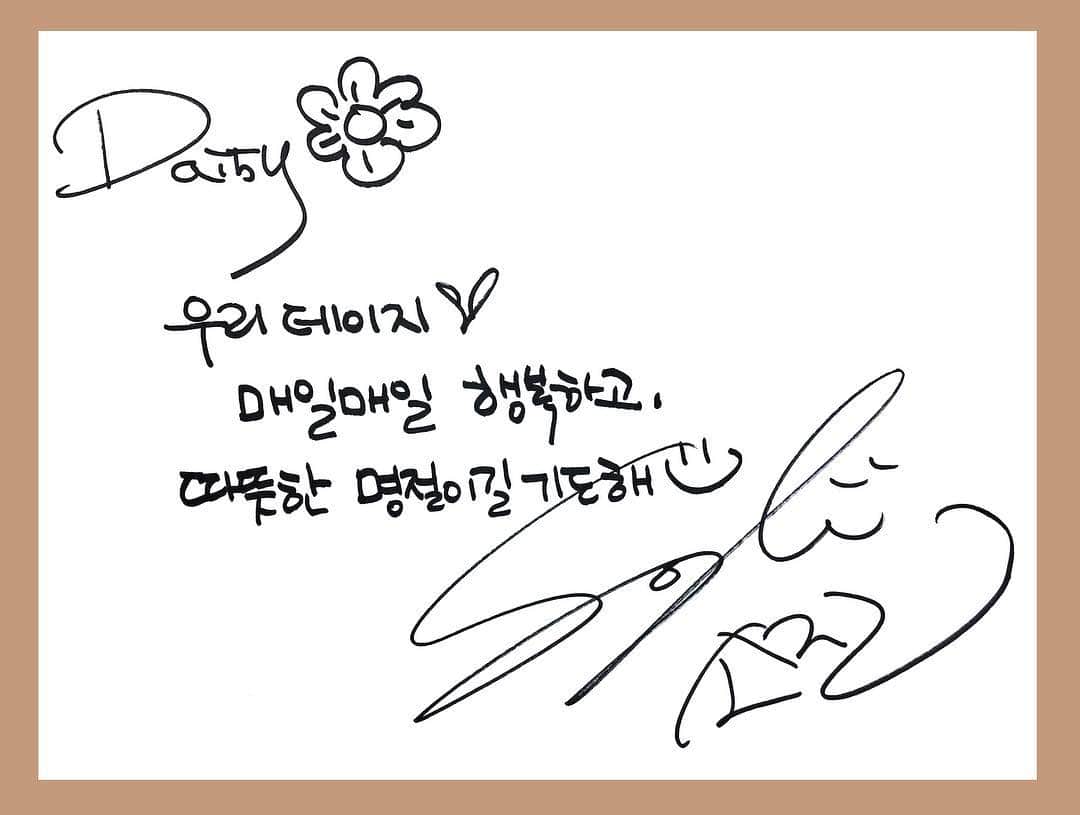 Daisy
우리 데이지
매일매일 행복하고.
따뜻한 명절이길 기도해